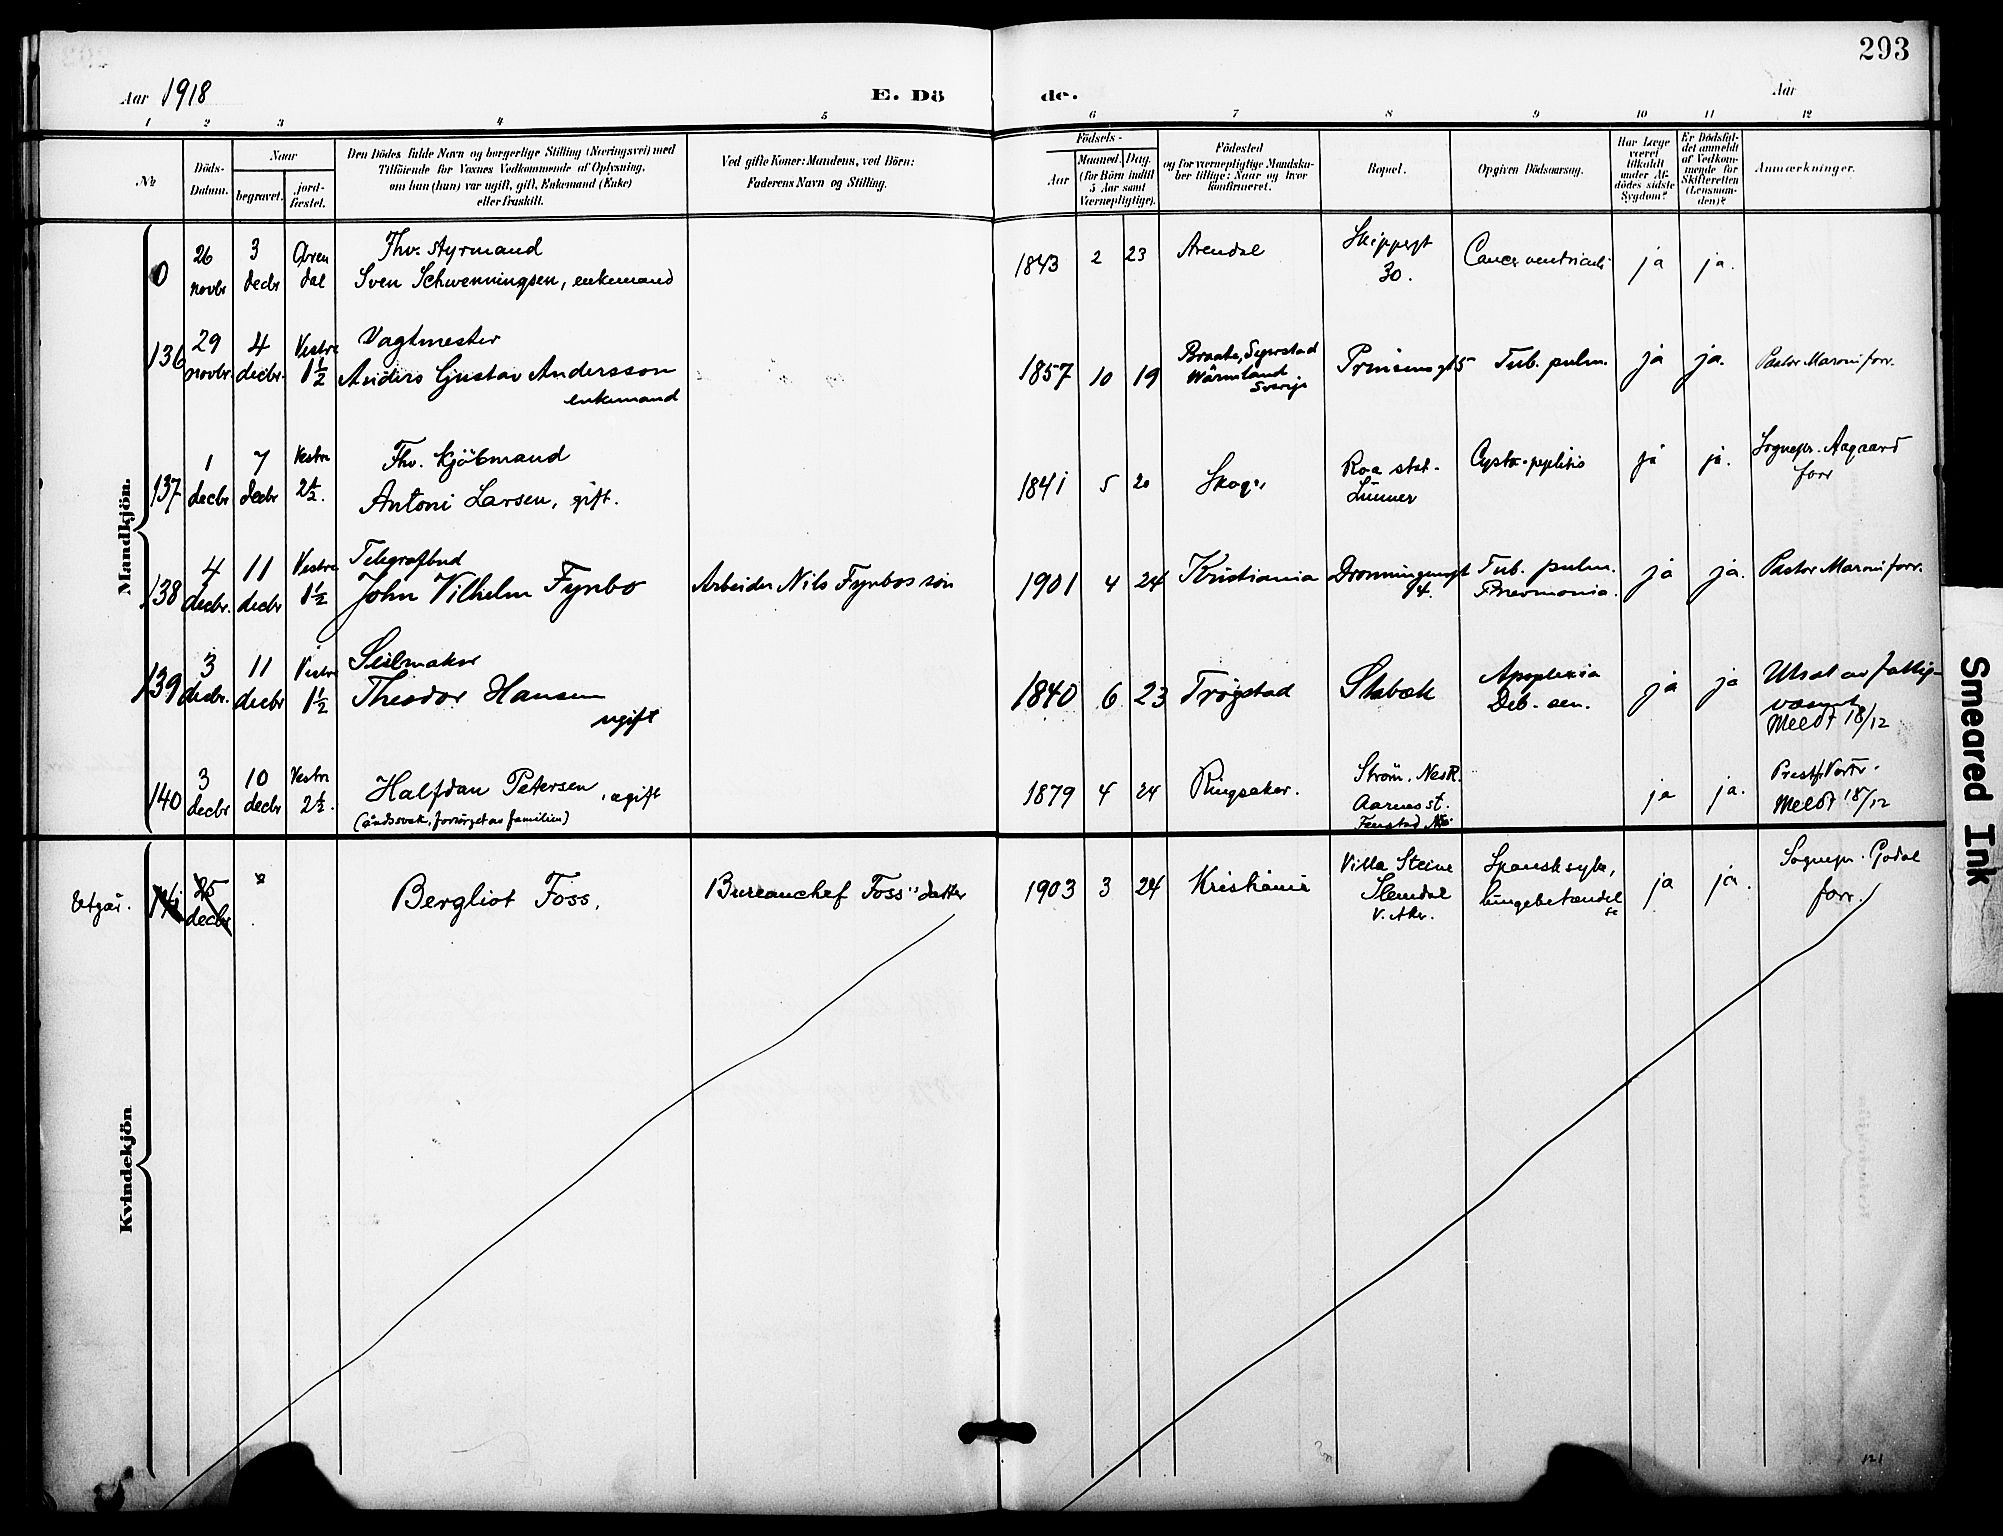 293
Aar 1918
E. Dö
de.
Aar
1 2 3 4 5 6 7 8 9 10 11 12
№
Döds-
Datum.
Naar
begravet.
jord-
fæstet.
Den Dödes fulde Navn og borgerlige Stilling (Næringsvei) med
Tilföiende for Voxnes Vedkommende af Oplysning,
om han (hun) var ugift, gift, Enkemand (Enke)
eller fraskilt.
Ved gifte Koner: Mandens, ved Börn:
Faderens Navn og Stilling.
Födsels-
Aar
Maaned. Dag.
(for Börn indtil
5 Aar samt
Værnepligtige).
Födested
og for værnepligtige Mandska-
ber tillige: Naar og hvor
konfirmeret.
Bopæl.
Opgiven Dödsaarsag.
Har Læge
været
tilkaldt
under Af-
dödes sidste
Sygdom?
Er Dödsfal-
det anmeldt
af Vedkom-
mende for
Skifteretten
(Lensman-
den)?
Anmærkninger.
Mandkjön.
0 26 novbr 3 decbr Arendal
Fhv. styrmand
Sven Schwenningsen, enkemand
1843 2 23 Arendal Skippergt 30. Cancer ventriculi ja ja.
136 29 novbr. 4 decbr. Vestre 1½
Vagtmester
Anders Gustav Andersson
enkemand
1857 10 19
Wärmland
Sverige
Prinsensgt 5 Tub. pulm. ja ja. Pastor Maroni forr.
137 1 decbr 7 decbr Vestre 2½.
Fhv. Kjöbmand
Antoni Larsen, gift.
1841 5 20 Skoger Roa stat. Lunner ja ja. Sognepr. Aagaard forr
138 4 decbr. 11 decbr Vestre 1½
Telegrafbud
John Vilhelm Fynbo
Arbeider Nils Fynbos søn
1901 4 24 Kristiania Dronningensgt 14. Tub. pulm. Pneumonia. ja ja. Pastor Maroni forr.
139 3 decbr. 11 decbr Vestre 1½
Seilmaker
Theodor Hansen
ugift
1840 6 23 Trögstad Stabæk Apoplexia Deb. sen. ja ja
Utsat av fattig-
væsenet
Meldt 18/12
140 3 decbr 10 decbr Vestre 2½.
Halfdan Petersen, ugift
(åndssvak, forsörget av familien)
1879 4 24 Ringsaker. Ström. Nes R. Aarnes st. ja ja.
Meldt 18/12
Kvindekjön
Utgår. 141 25 decbr
Bergliot Foss.
Bureauchef Foss'' datter
1903 3 24 Kristiania
Villa Steine
Slemdal
V. Aker.
Spansksyke,
lungebetændelse
ja ja.
Sognepr. Gjødal
forr.
Smeared Ink
121